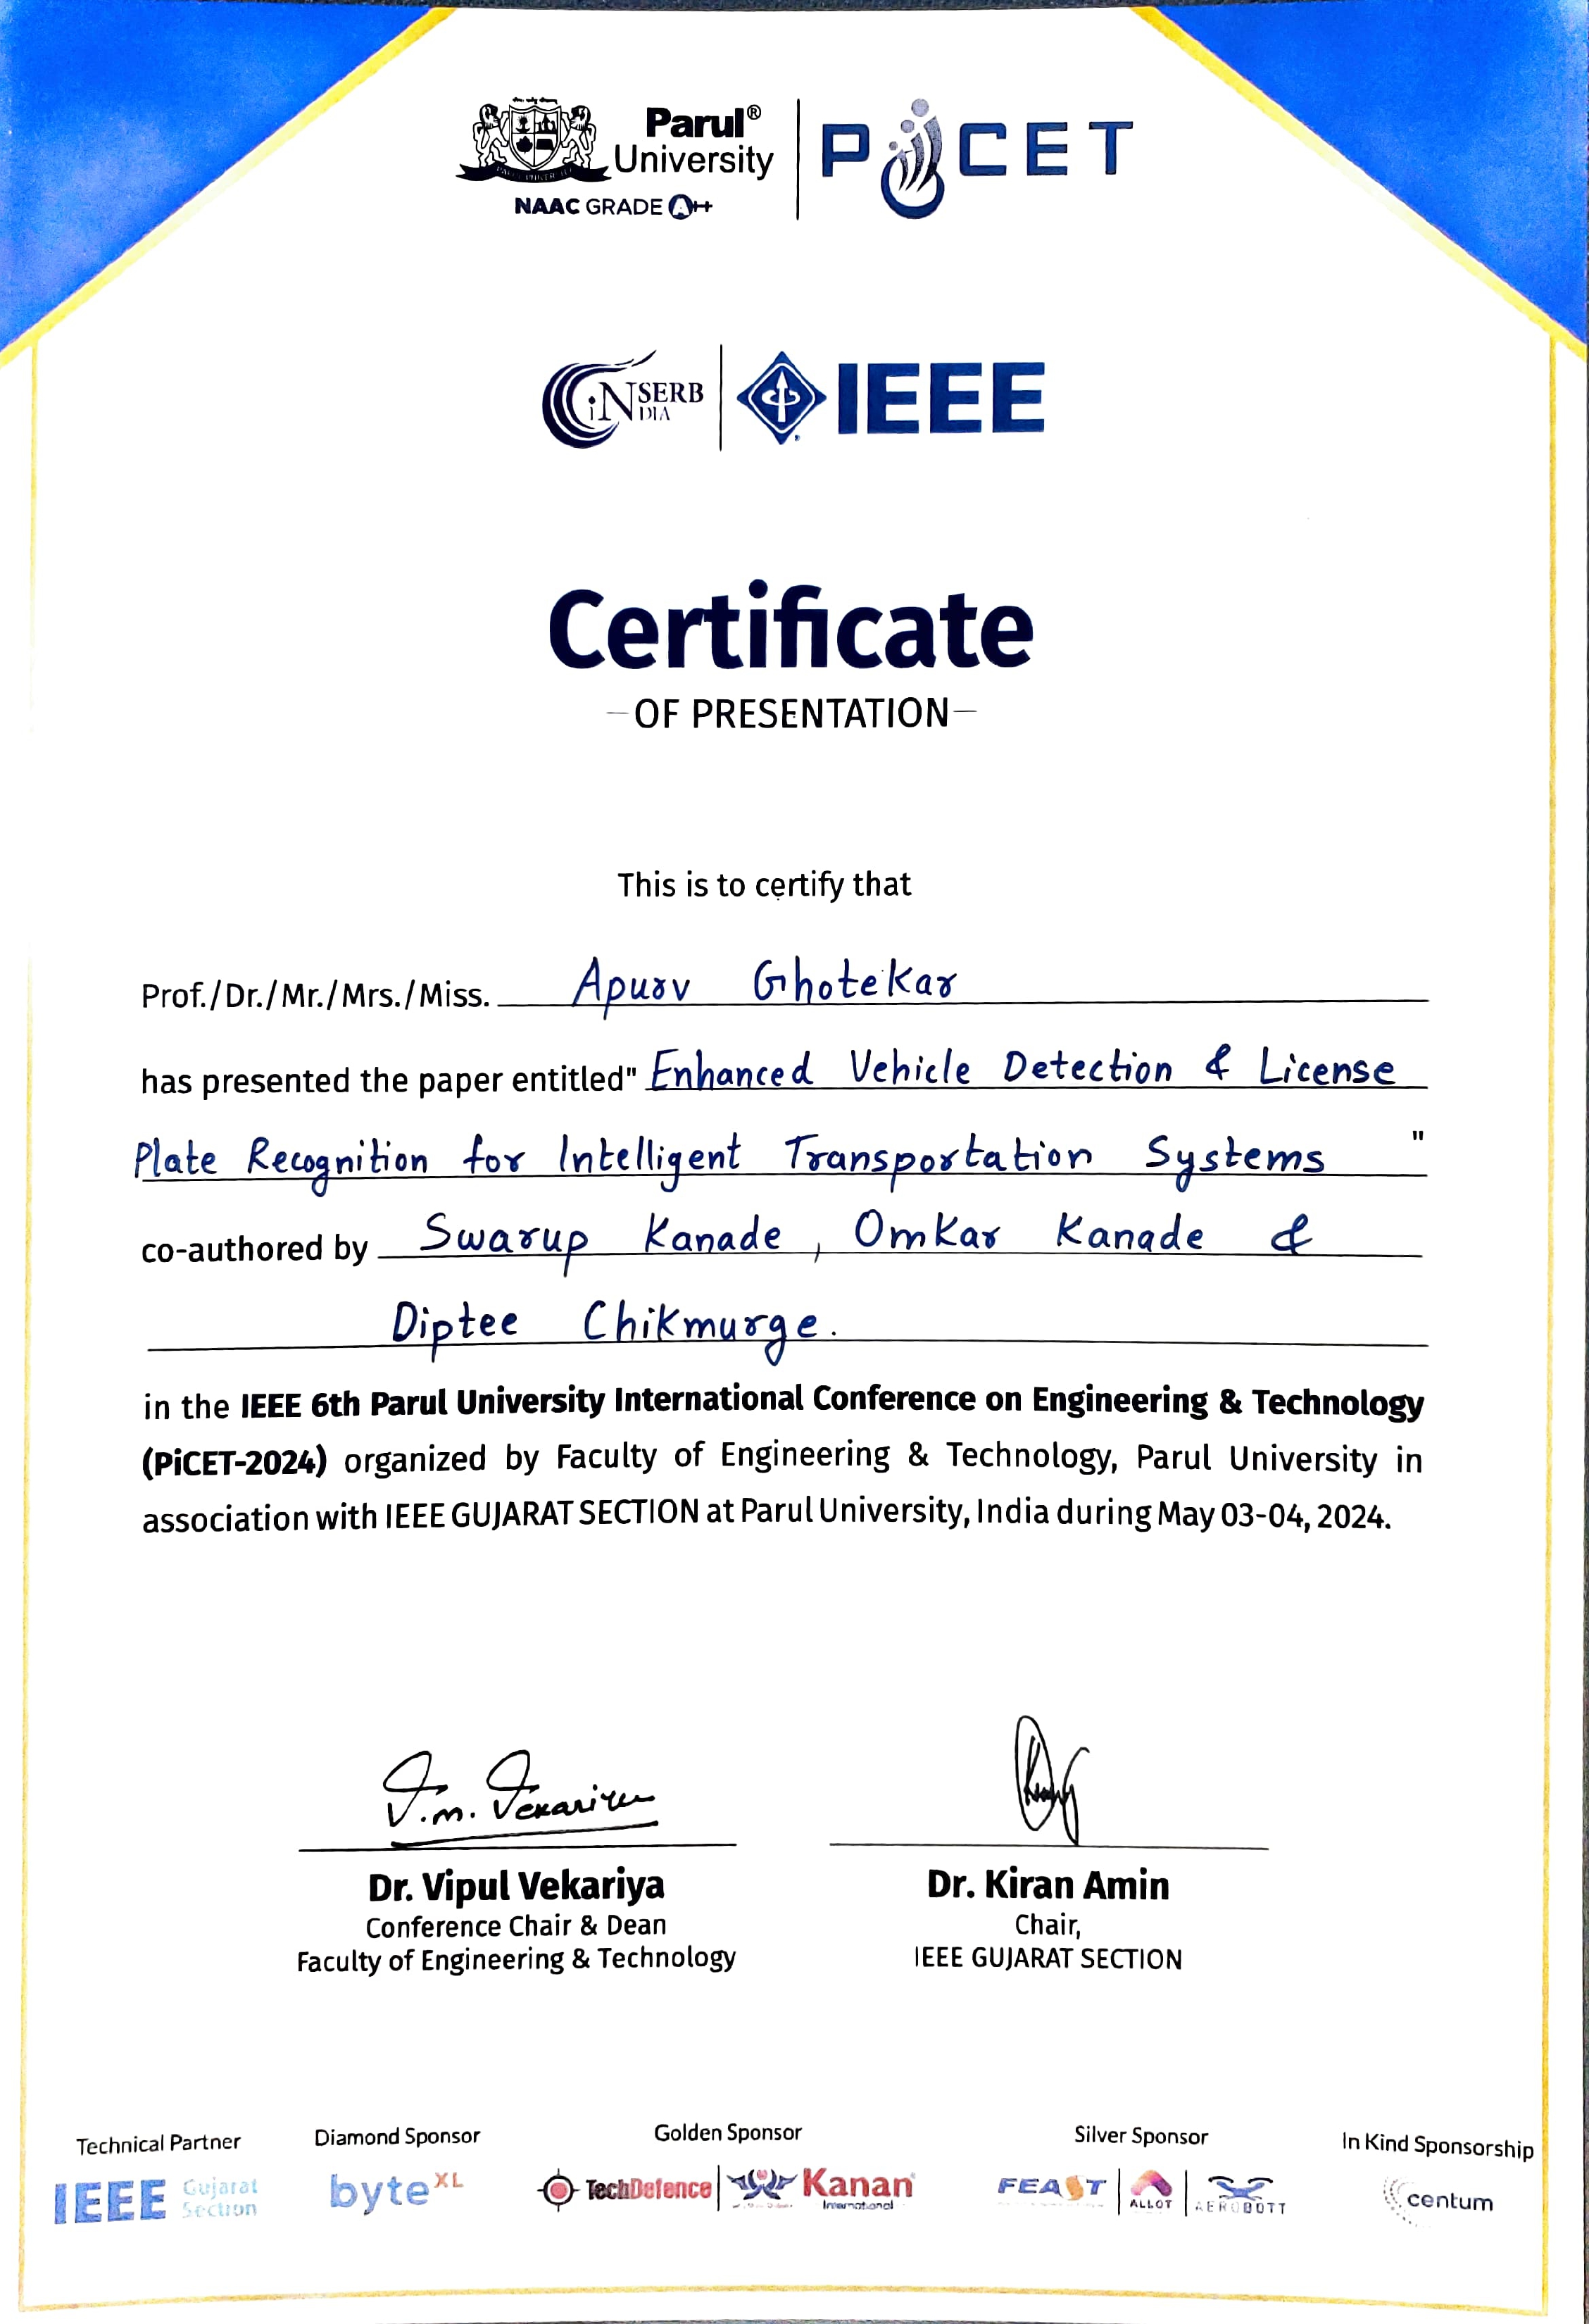 Parul®
University
NAAC GRADE A++
PiCET
SERB
iNDIA
IEEE
Certificate
OF PRESENTATION
This is to certify that
Prof./Dr./Mr./Mrs./Miss. Apurv Ghotekar
has presented the paper entitled" Enhanced Vehicle Detection & License
Plate Recognition for Intelligent Transportation Systems "
co-authored by Swarup Kanade, Omkar Kanade &
Diptee Chikmurge.
in the IEEE 6th Parul University International Conference on Engineering & Technology
(PiCET-2024) organized by Faculty of Engineering & Technology, Parul University in
association with IEEE GUJARAT SECTION at Parul University, India during May 03-04, 2024.
V.m. Vekariya
Dr. Vipul Vekariya
Conference Chair & Dean
Faculty of Engineering & Technology
Dr. Kiran Amin
Chair,
IEEE GUJARAT SECTION
Technical Partner
IEEE Gujarat Section
Diamond Sponsor
byteXL
Golden Sponsor
TechDefence
Kanan International
Silver Sponsor
FEAST
ALLOT
AEROBOTT
In Kind Sponsorship
centum